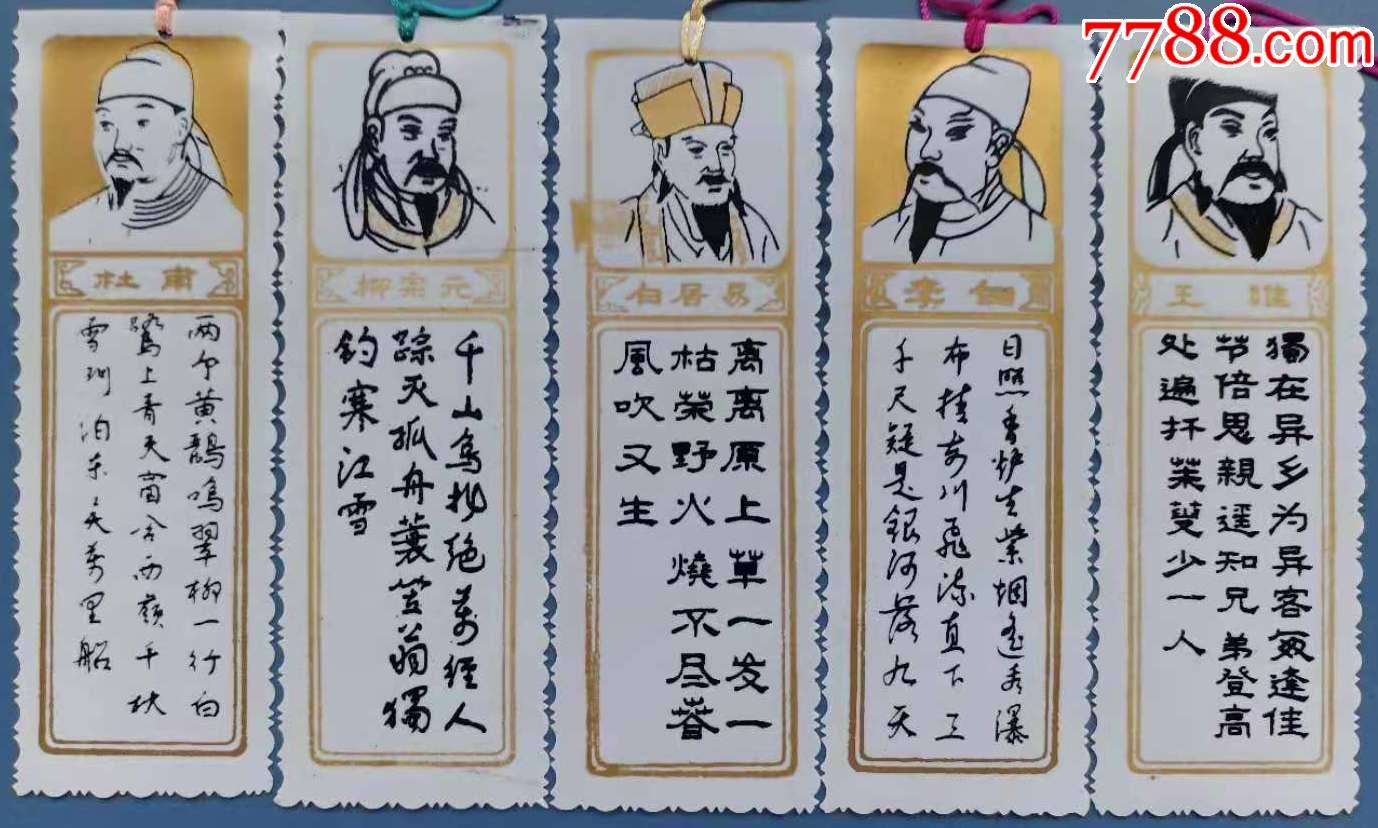 7788.com
杜甫
两个黄鸝鳴翠柳一行白
鷺上青天窗含西嶺千秋
雪门泊东吴萬里船
柳宗元
千山鸟飛绝萬径人
踪灭孤舟蓑笠翁獨
釣寒江雪
白居易
离离原上草一岁一
枯榮野火燒不尽春
風吹又生
李白
日照香炉生紫烟遥看瀑
布挂前川飛流直下三
千尺疑是銀河落九天
王維
獨在异乡为异客每逢佳
节倍思親遥知兄弟登高
处遍插茱萸少一人